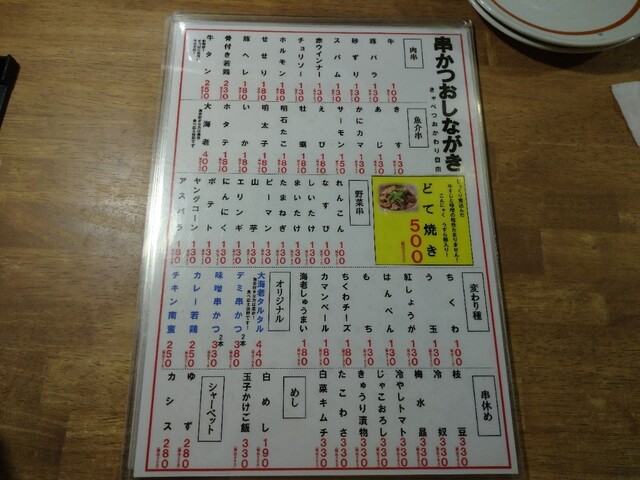 串かつおしながき
きゃべつおかわり自由
肉串
牛 100
豚バラ 130
砂ずり 130
スパム 130
赤ウインナー 130
チョリソー 130
ホルモン 180
せせり 180
豚ヘレ 180
骨付き若鶏 230
牛タン 250
魚介串
きす 130
あじ 130
かにカマ 130
サーモン 150
えび 180
牡蠣 180
明石たこ 180
明太子 180
いか 180
ホタテ 180
大海老 400
どて焼き
500
野菜串
れんこん 100
なすび 100
しいたけ 130
まいたけ 130
たまねぎ 130
ピーマン 130
山芋 130
エリンギ 130
にんにく 130
ポテト 130
ヤングコーン 130
アスパラ 180
変わり種
ちくわ 100
う玉 130
紅しょうが 130
はんぺん 130
もち 130
ちくわチーズ 180
カマンベール 180
海老しゅうまい 180
オリジナル
大海老タルタル 440
デミ串かつ 2本 380
味噌串かつ 2本 330
カレー若鶏 250
チキン南蛮 250
串休め
枝豆 330
冷奴 330
梅水晶 330
冷やしトマト 330
じゃこおろし 330
きゅうり漬物 330
たこわさ 330
白菜キムチ 330
めし
白めし 190
玉子かけご飯 330
シャーベット
ゆず 280
カシス 280